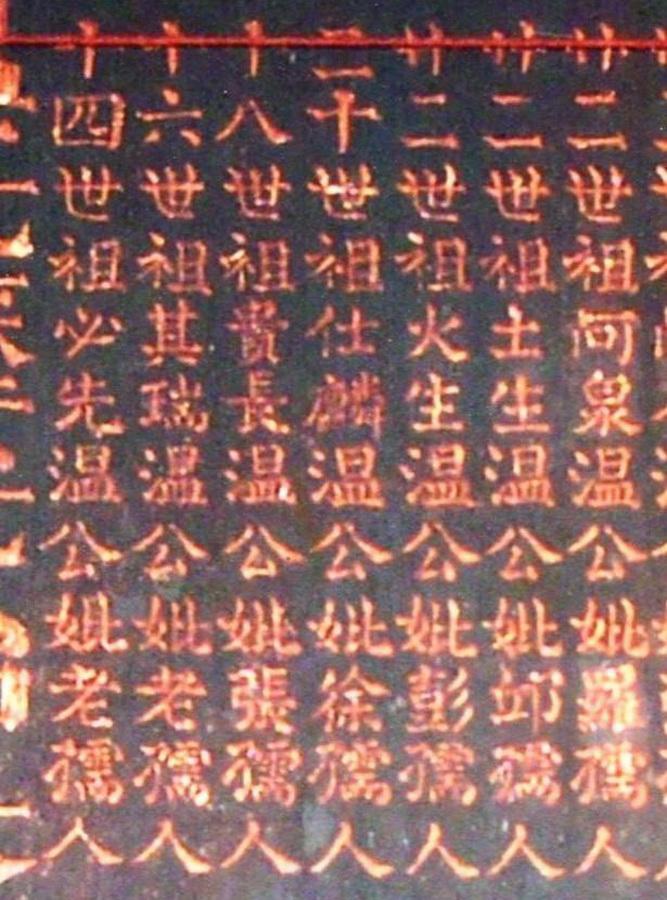 廿二世祖問泉温公妣羅孺人
廿二世祖土生温公妣邱孺人
廿二世祖火生温公妣彭孺人
二十世祖仕麟温公妣徐孺人
十八世祖貴長温公妣張孺人
十六世祖其瑞温公妣老孺人
十四世祖必先温公妣老孺人